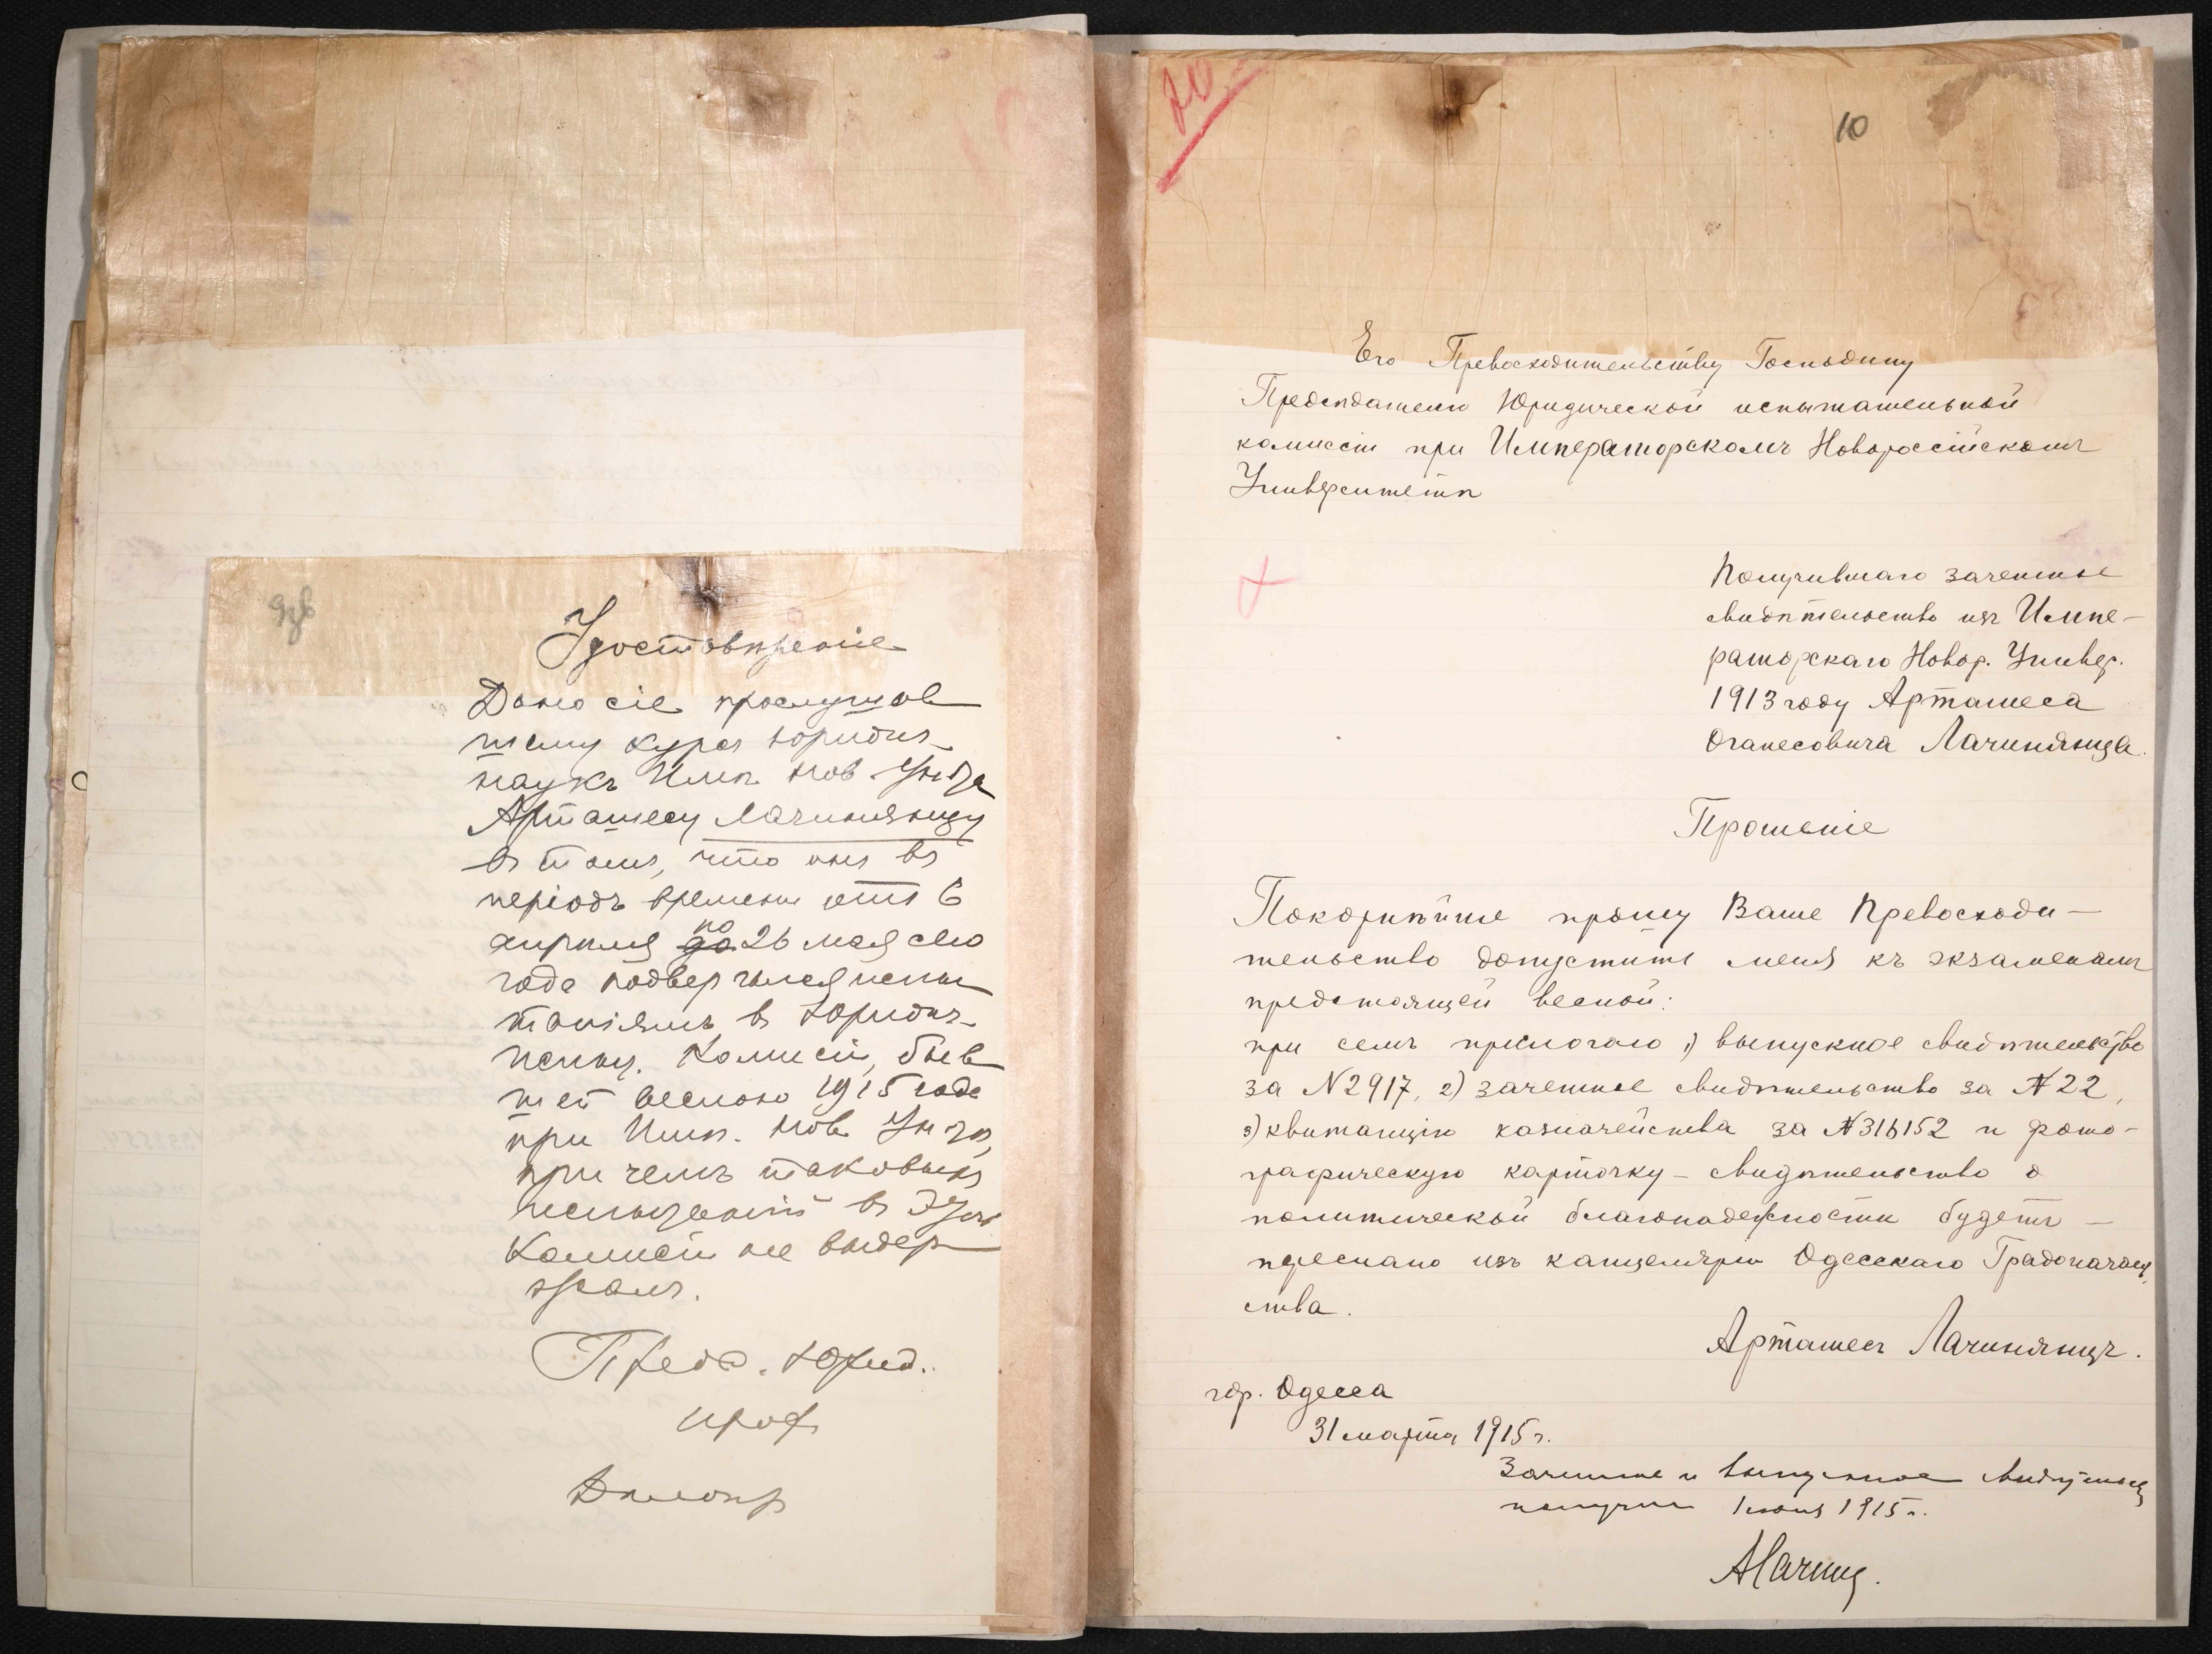 Удостовѣреніе
Дано сіе прослушав
шему курсъ юридич.
наукъ Имп. Нов. Ун-та
Арташесу Лачиньянцу
въ томъ, что онъ въ
періодъ времени отъ 6
апрѣля до по 26 мая сего
года подвергался испы
таніямъ въ Юридич.
испыт. Комисіи, быв
шей весною 1915 года
при Имп. Нов. Ун-тѣ,
при чемъ таковыхъ
испытаній въ Эту
Комисіи не выдер
жалъ.
Предс. Юрид.
проф
20
10
Его Превосходительству Господину
Предсѣдателю Юридической испытательной
комиссіи при Императорскомъ Новороссійскомъ
Университетѣ
Получившаго зачетное
свидѣтельство изъ Импе-
раторскаго Новор. Универ.
1913 году Арташеса
Оганесовича Лачиньянца.
Прошеніе
Покорнѣйше прошу Ваше Превосходи-
тельство допустить меня къ экзаменамъ
предстоящей весной:
при семъ прилагаю 1) выпускное свидѣтельство
за N 2917, 2) зачетное свидѣтельство за N 22,
3) квитанцію казначейства за N 316152 и фото-
графическую карточку - свидѣтельство о
политической благонадежности будетъ -
переслано изъ канцеляріи Одесскаго Градоначаль
ства.
Арташесъ Лачиньянцъ.
гор. Одесса
31 марта 1915 г.
Зачетное и выпускное свидѣтельс
получилъ 1 июня 1915 г.
АЛачинц.